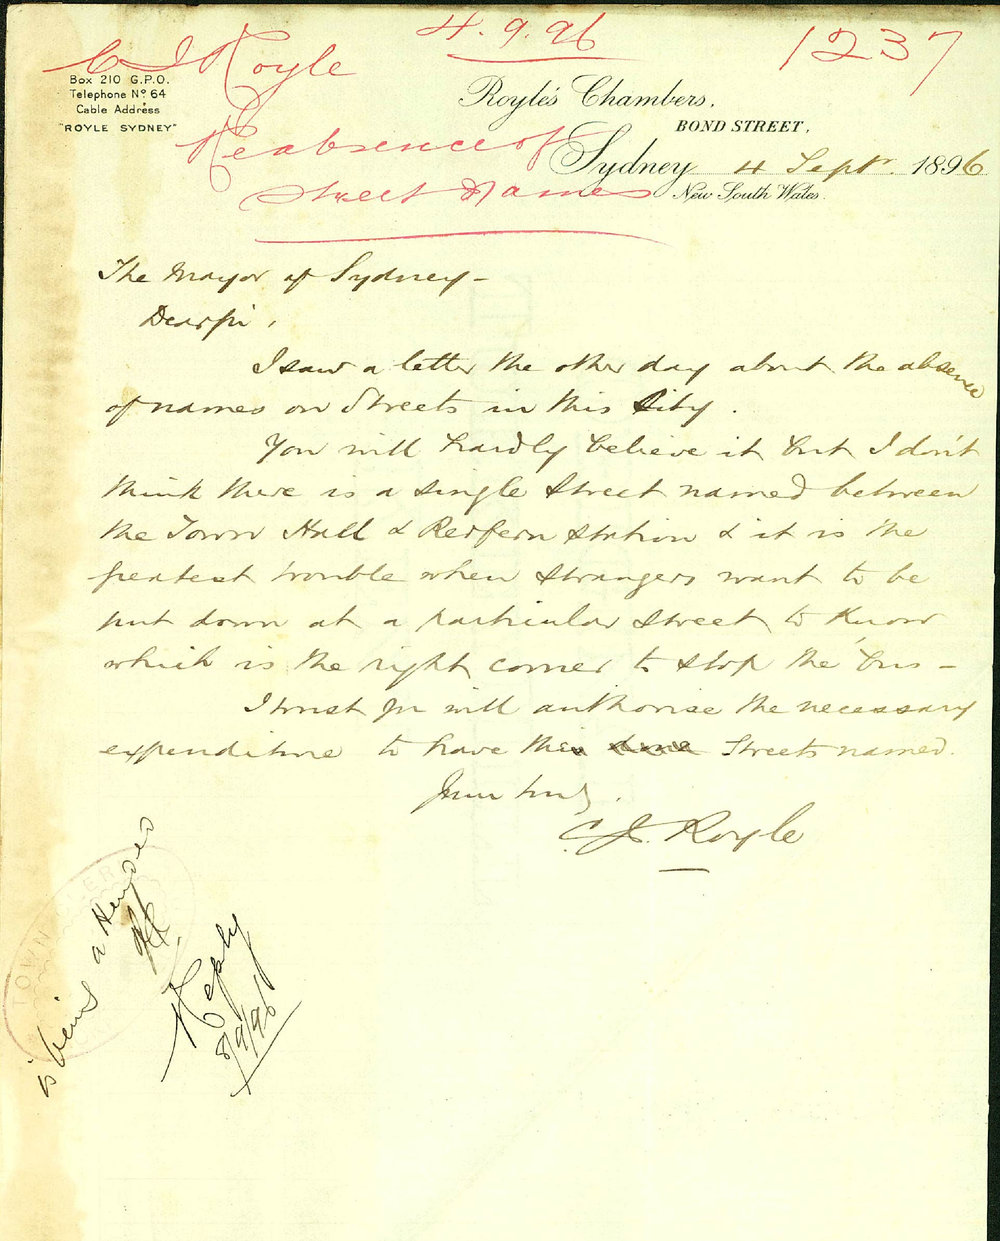 C J Royle
4.9.96
1237
Re absence of
Street Names
Box 210 G.P.O.
Telephone No 64
Cable Address
"ROYLE SYDNEY"
Royle's Chambers,
BOND STREET,
Sydney 4 Septr. 1896
New South Wales.
The Mayor of Sydney -
Dear Sir,
I saw a letter the other day about the absence
of names on Streets in this City.
You will hardly believe it but I don't
think there is a single Street named between
the Town Hall & Redfern Station & it is the
greatest trouble when strangers want to be
put down at a particular Street to know
which is the right corner to stop the bus -
I trust you will authorise the necessary
expenditure to have the Streets named.
Yours truly,
C. J. Royle
is being attended
Reply
8/9/96
TOWN CLERK